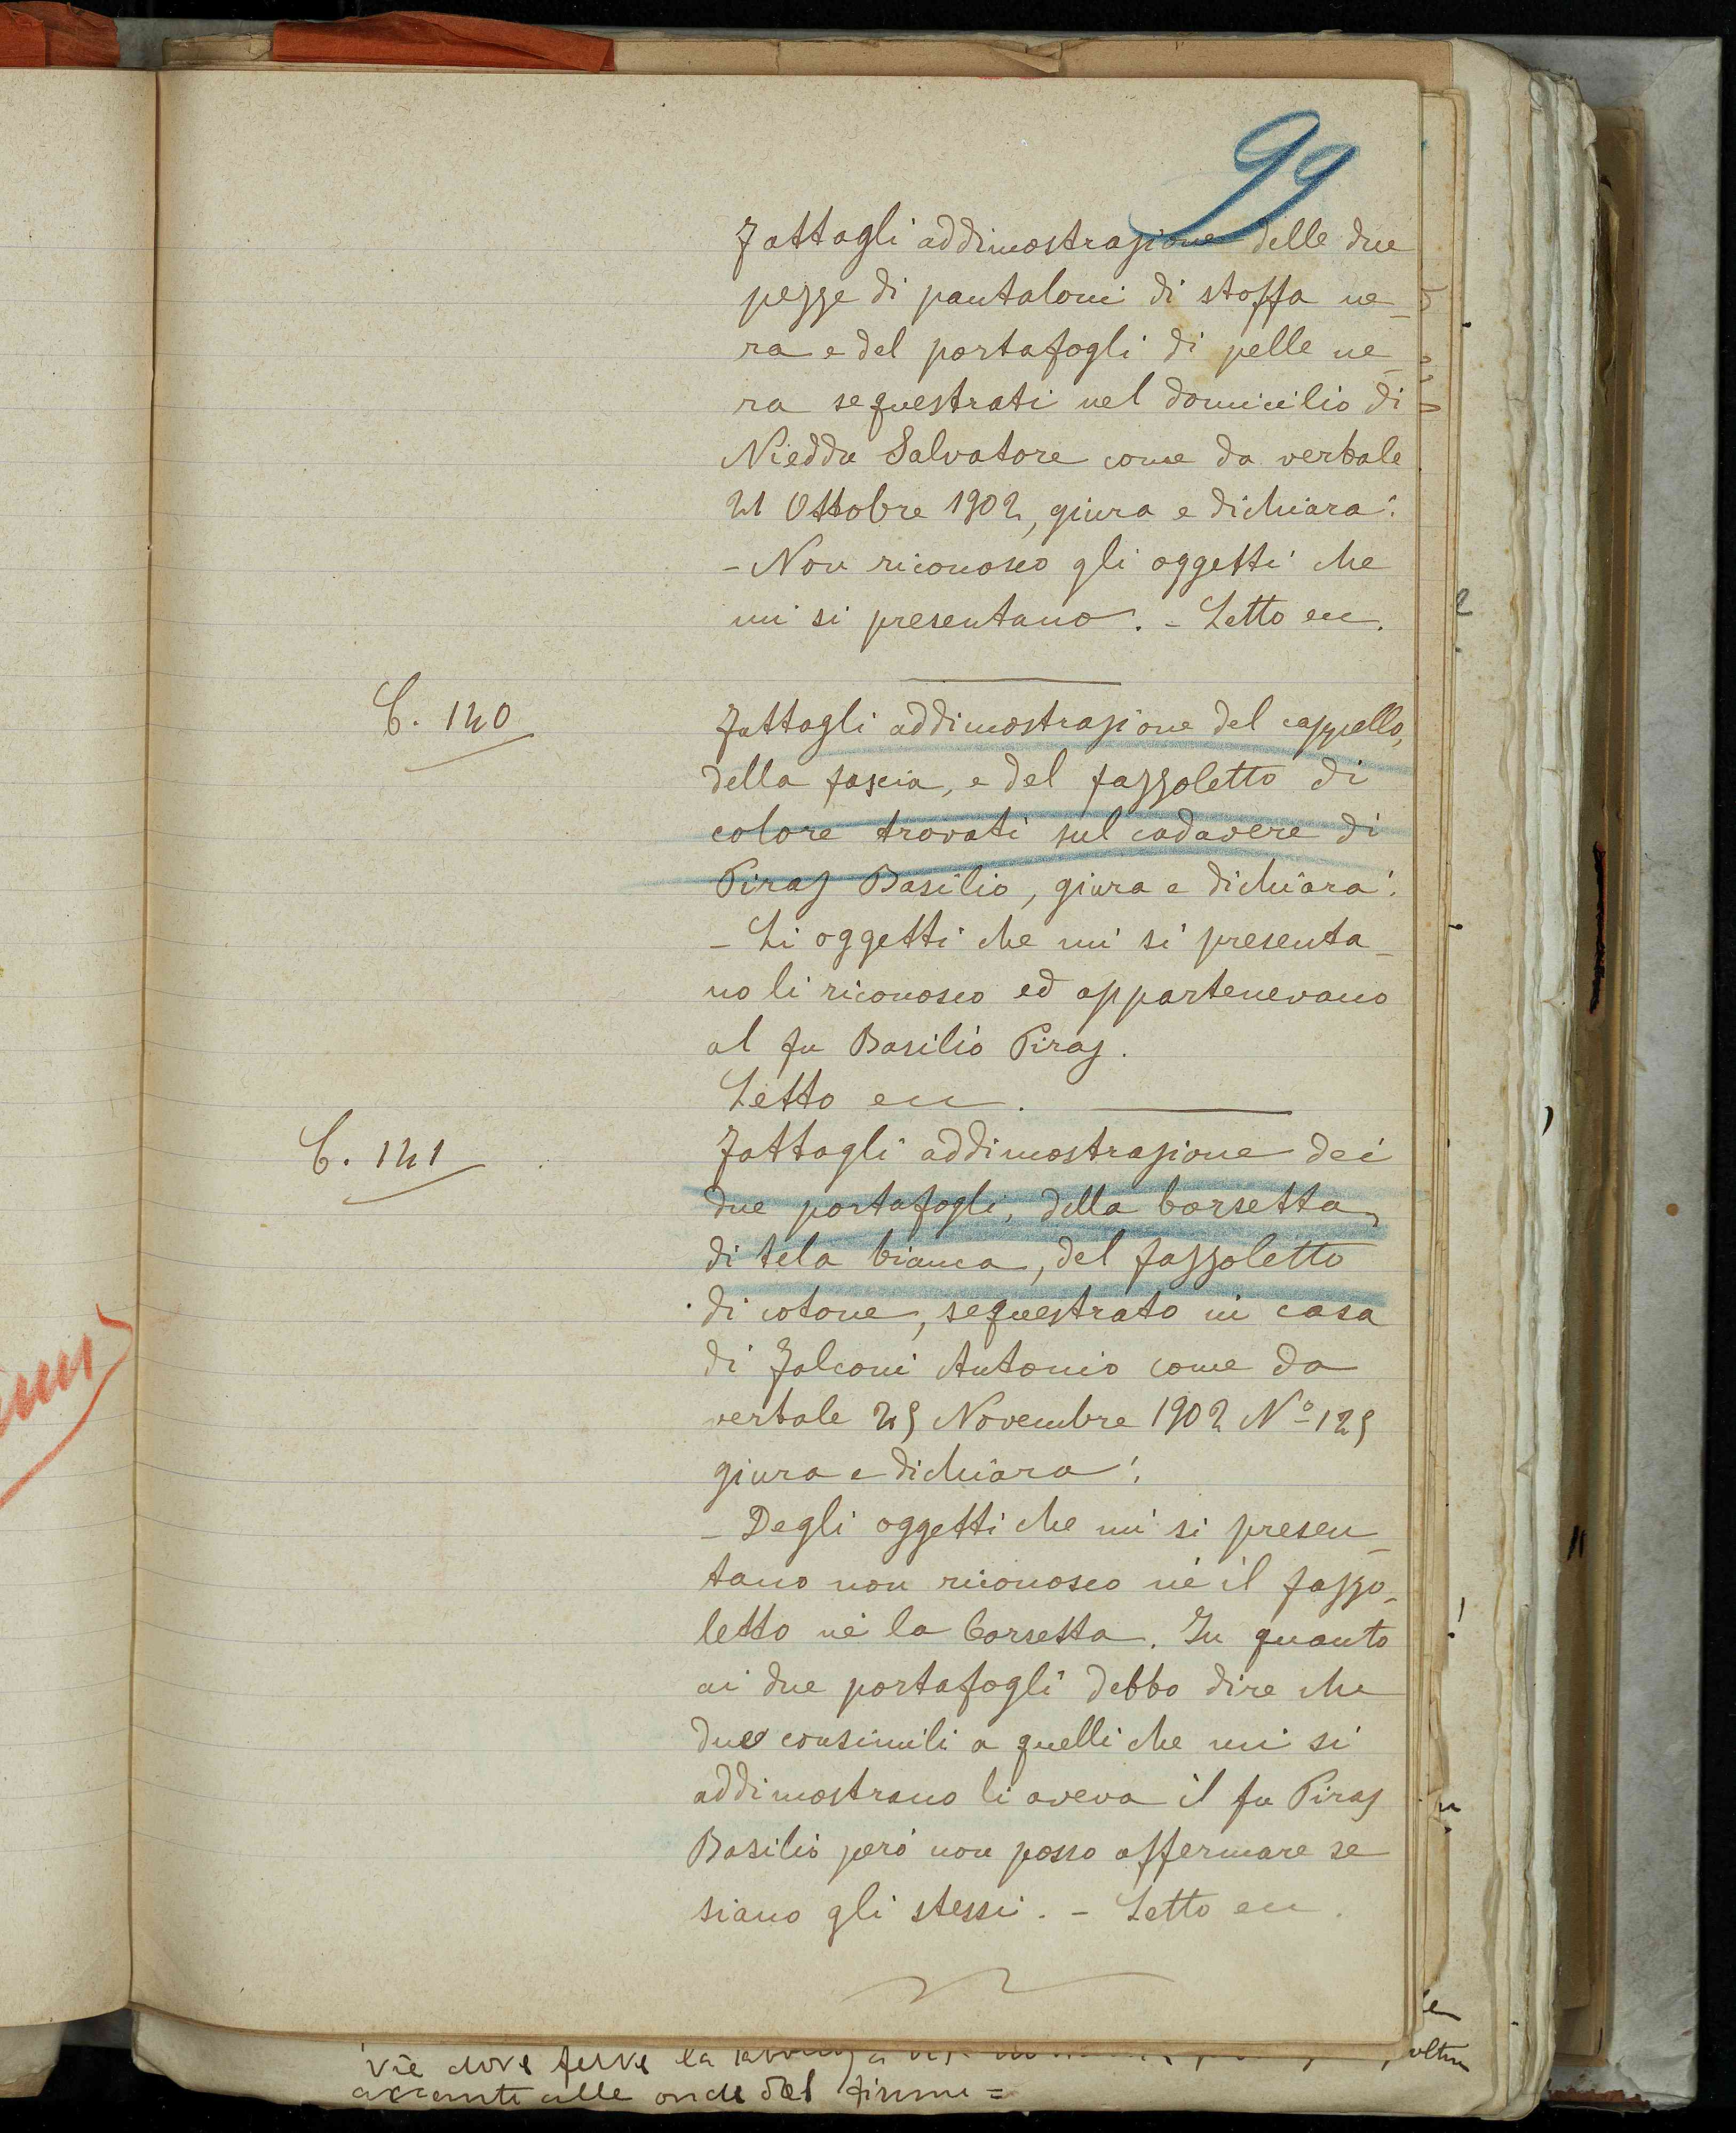 99
Fattagli addimostrazione delle due
pezze di pantaloni di stoffa ne_
ra e del portafogli di pelle ne_
ra sequestrati nel domicilio di
Nieddu Salvatore come da verbale
21 Ottobre 1902, giura e dichiara:
- Non riconosco gli oggetti che
mi si presentano. - Letto ecc.
C. 140
Fattagli addimostrazione del cappello,
della fascia, e del fazzoletto di
colore trovati sul cadavere di
Piras Basilio, giura e dichiara:
- Li oggetti che mi si presenta_
no li riconosco ed appartenevano
al fu Basilio Piras.
Letto ecc.
C. 141
Fattagli addimostrazione dei
due portafogli, della borsetta,
di tela bianca, del fazzoletto
di cotone, sequestrato in casa
di Falconi Antonio come da
verbale 25 Novembre 1902 Nº 125
giura e dichiara:
- Degli oggetti che mi si presen_
tano non riconosco nè il fazzo_
letto nè la borsetta. In quanto
ai due portafogli debbo dire che
due consimili a quelli che mi si
addimostrano li aveva il fu Piras
Basilio però non posso affermare se
siano gli stessi. - Letto ecc.
vie dove la
alle onde del fiume =